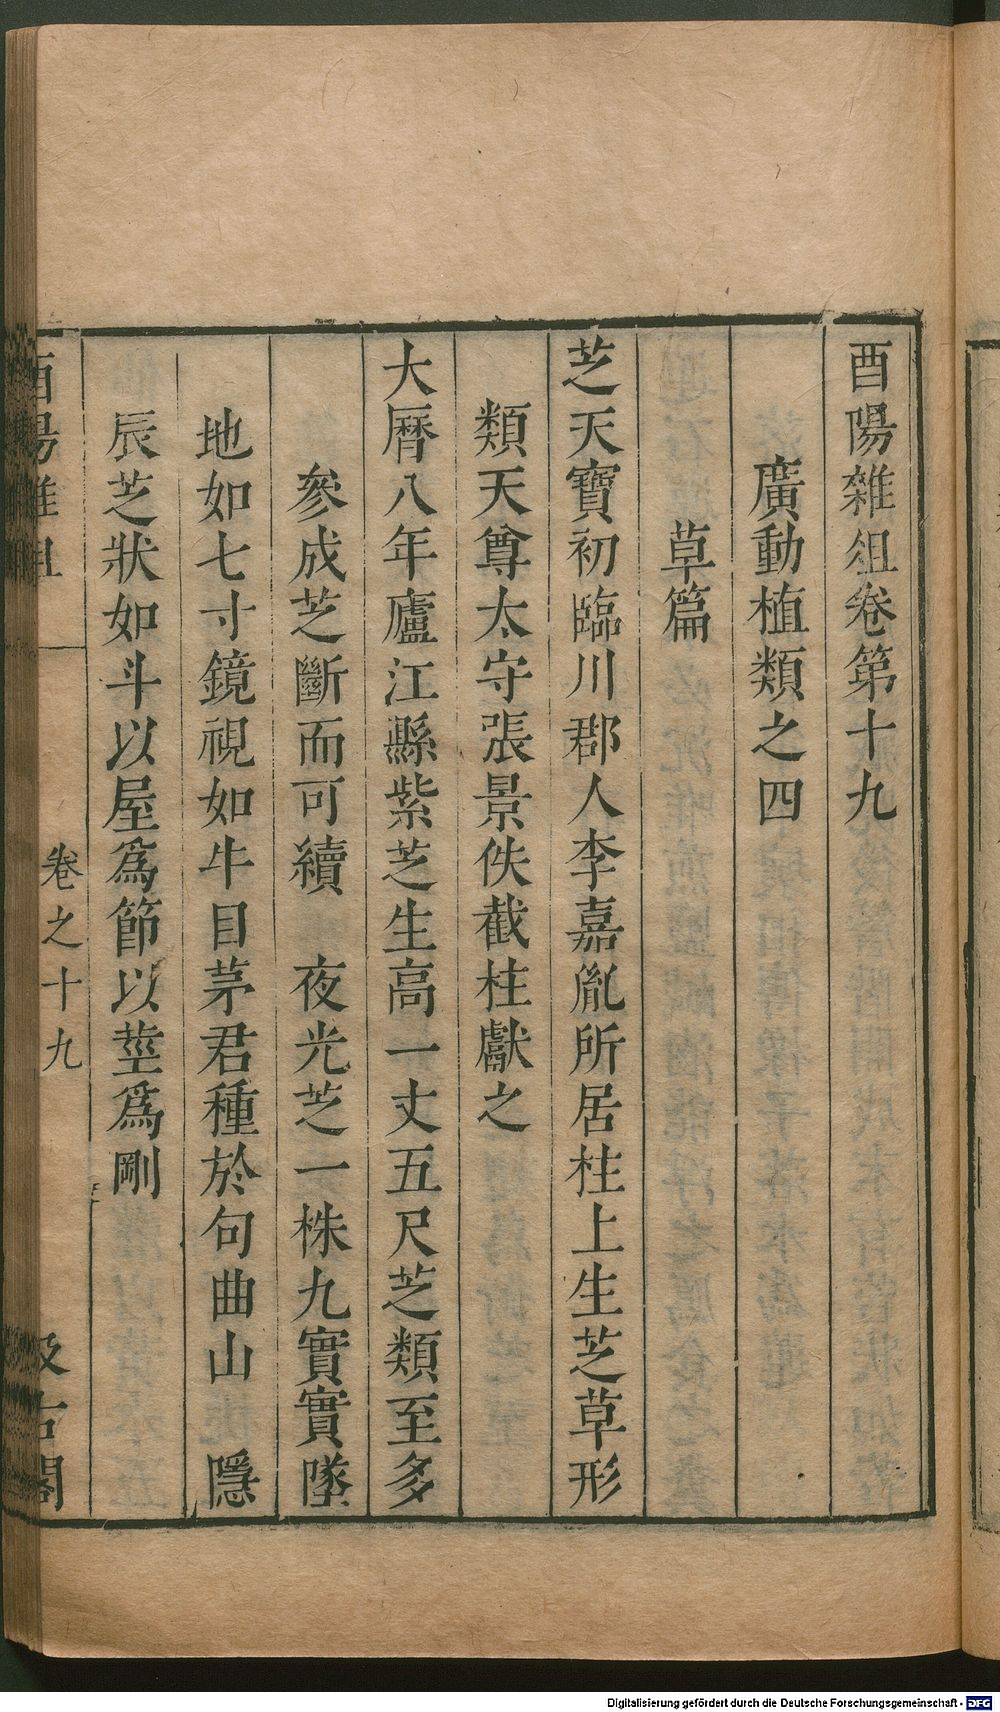 酉陽雜俎卷第十九
廣動植類之四
草篇
芝天寶初臨川郡人李嘉胤所居柱上生芝草形
類天尊太守張景佚截柱獻之
大曆八年廬江縣紫芝生高一丈五尺芝類至多
參成芝斷而可續　夜光芝一株九實實墜
地如七寸鏡視如牛目茅君種於句曲山　隱
辰芝狀如斗以屋爲節以莖爲剛
酉陽雜俎
卷之十九
汲古閣
Digitalisierung gefördert durch die Deutsche Forschungsgemeinschaft - DFG